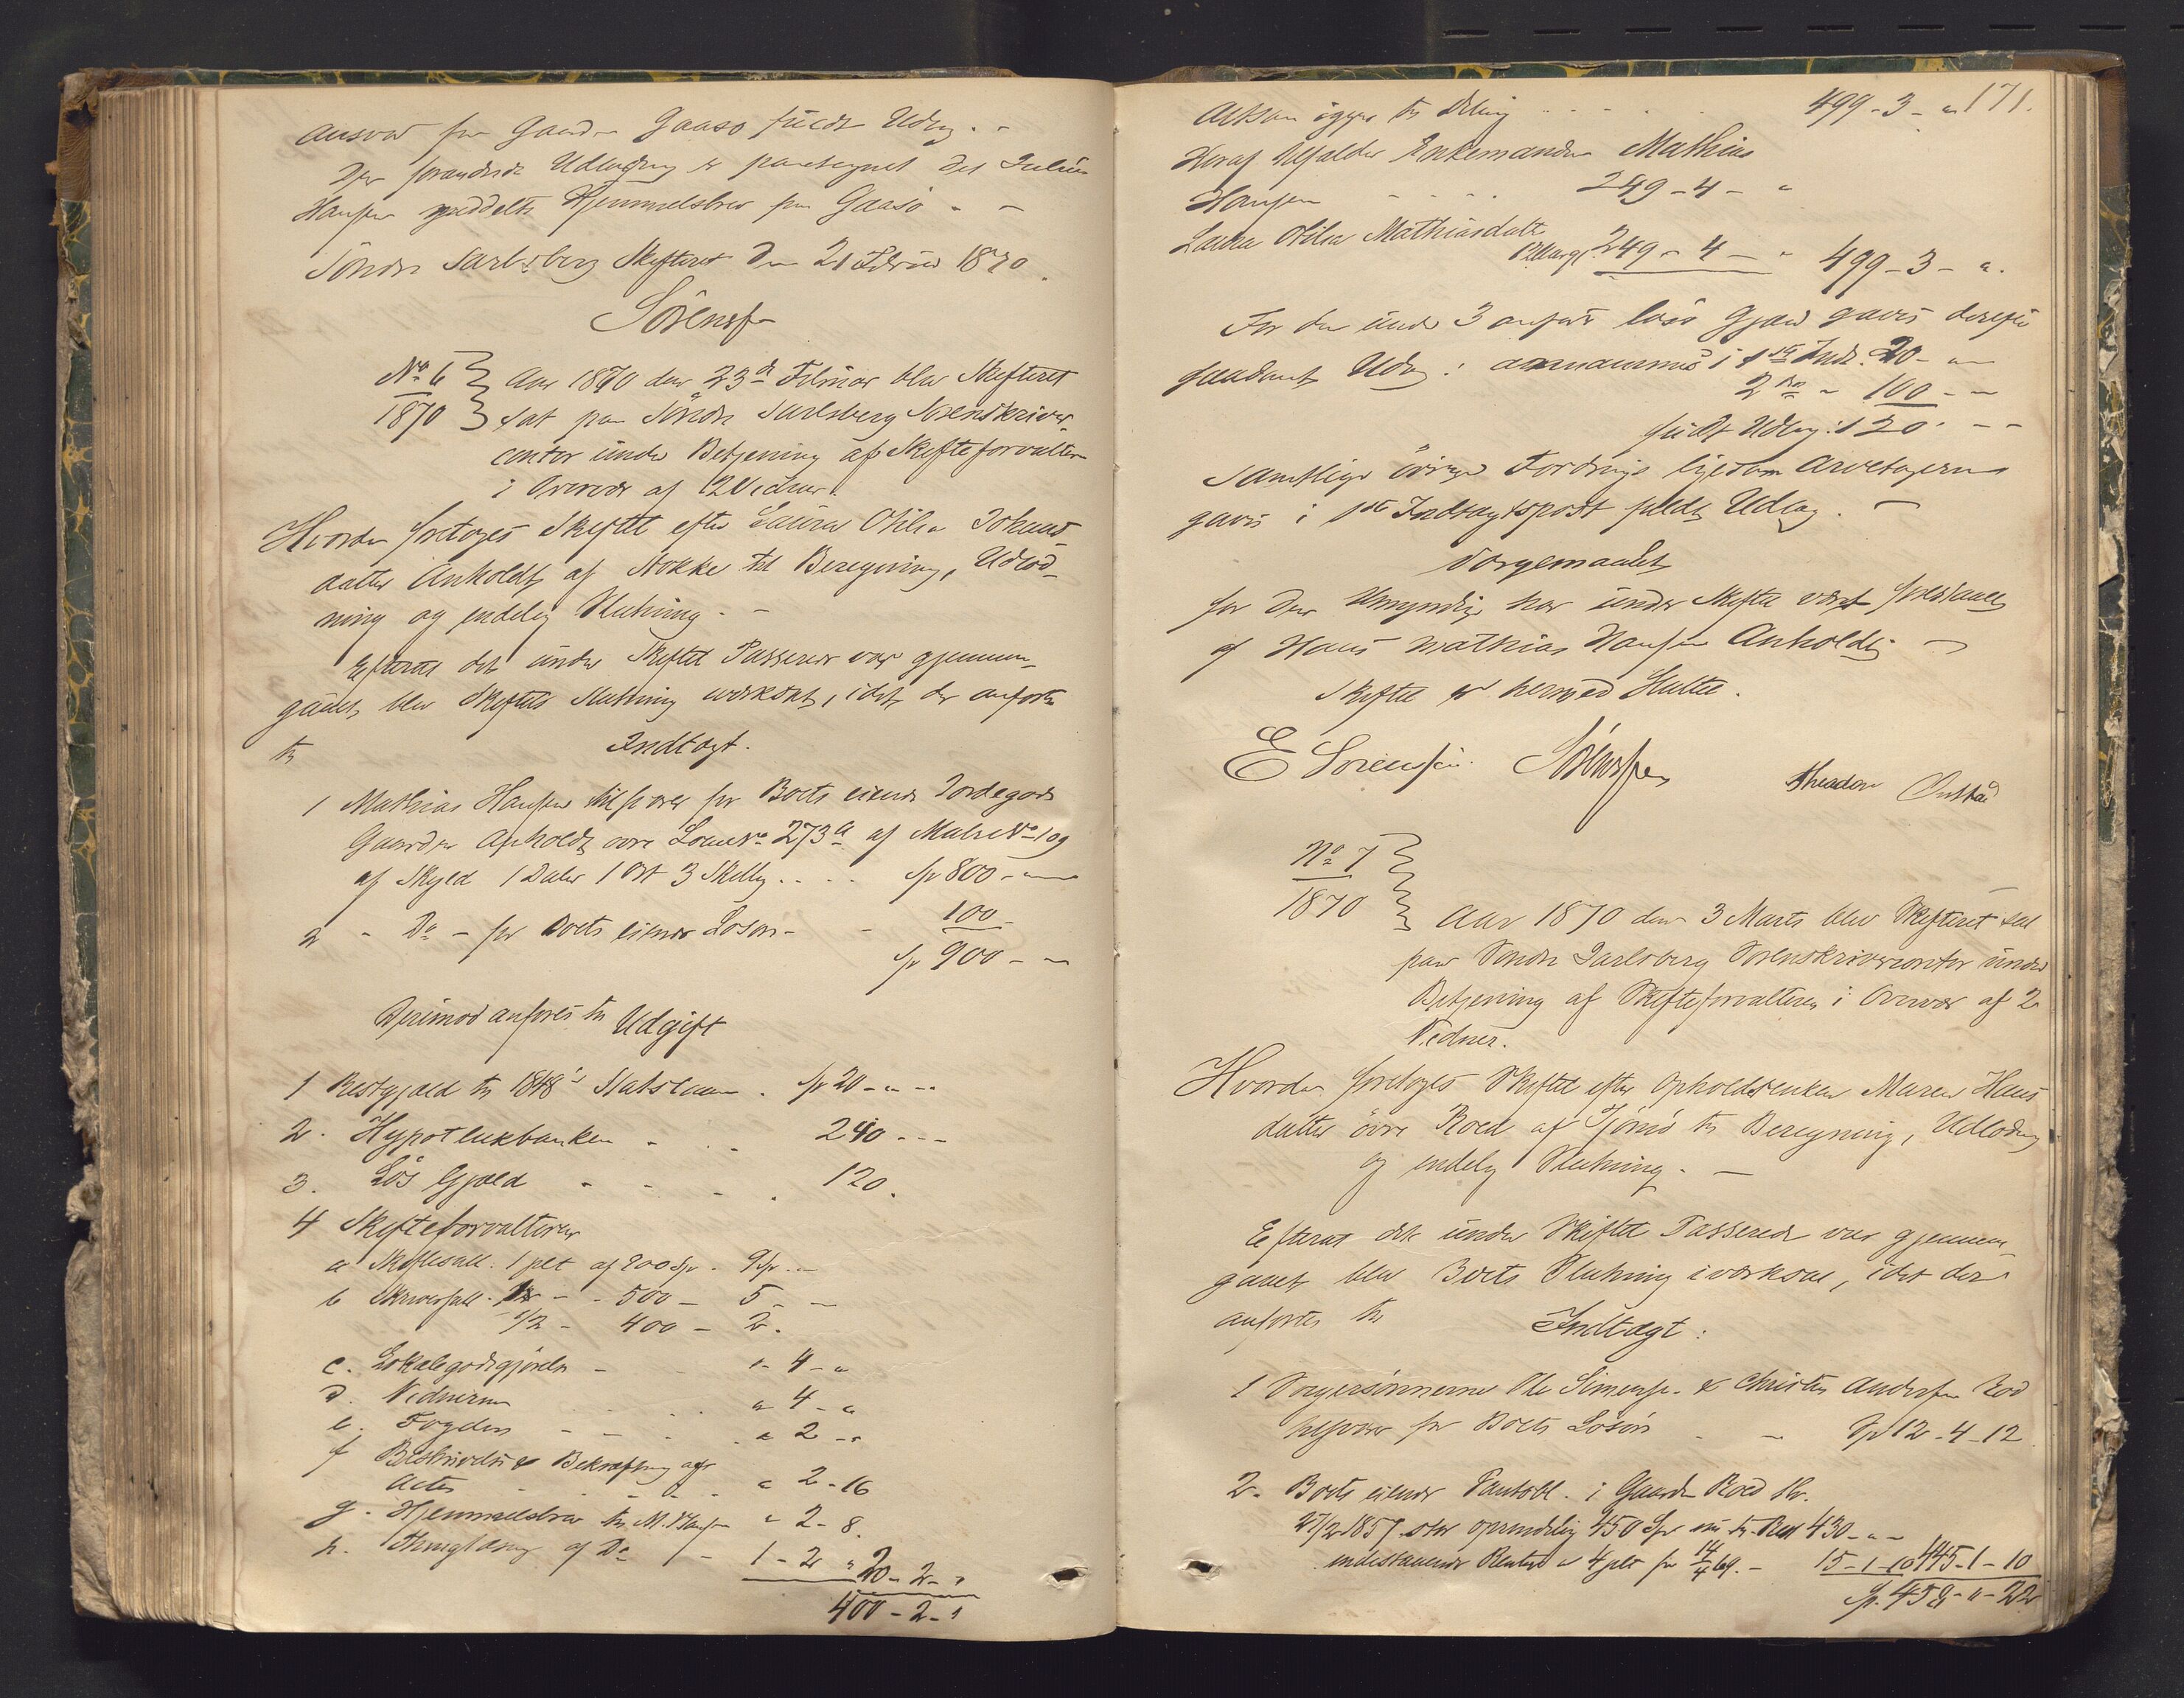 Ansvar for Gaarden Gaasø fuldt Udlæg. -
Den forandrede Udlægning er paategnet det Julius
Hansen meddelte Hjemmelsbrev paa Gaasø - -
Søndre Jarlsberg Skifteret den 21 Februar 1870.
Sørensen
No 6
1870
Aar 1870 den 23de Februar blev Skifteret
sat paa Søndre Jarlsberg Sorenskriver-
contor under Betjening af Skifteforvalteren
i Overvær af 2 Vidner.
Hvorda foretoges Skiftet efter Laura Otilia Johans-
datter Anholdt af Stokke til Beregning, Udlod-
ning og endelig Slutning. -
Efterat det under Skiftet Passerede var gjennem-
gaaet, blev Skiftets Slutning iværksat, idet der anførtes
til Indtægt.
1 Mathias Hansen tilsvarer for Boets eiende Jordegods
Gaarden Anholdt øvre Løbeno 273a af Matr No 109
af Skyld 1 Daler 1 Ort 3 Skilling .... Sp 800 - " -
2 - Do - for Boets eiende Løsøre - - 100 -
Sp 900 - -
Derimod anføres til Udgift
1 Restgjæld til 1848's Statslaan . Sp 20 - " - "
2. Hypothekbanken - . . 240 - - -
3. Løs Gjæld - - - . 120.
4 Skifteforvalteren
a Skiftesall. 1 pct af 900 Sp. 9 Sp. -
b Skriversall. 1 - - 500 - 5 - -
1/2 - 400 - 2.
c. Lokalegodtgjørelse - " - 4 - "
d. Vidnerne . . . . " 4 - "
e. Fogden - - . . " 2 - "
f Beskrivelse & Bekræftning af
Acten - - - . " 2 - 16
g. Hjemmelsbrev til M. Hansen " 2 - 8.
h. Thinglæsning af Do - 1 - 2 " 20 - 2 - "
400 - 2 - "
171.
Altsaa igjen til Deling . . . . 499 - 3 - "
Heraf tilfalder Enkemanden Mathias
Hansen - - . . 249 - 4 - "
Laura Otilia Mathiasdatter
249 - 4 - " 499 - 3 - ".
For den under 3 anførte løse Gjæld gaves derefter
saadant Udlæg: i 1ste Indt. 20 - " -
2den " 100 - -
fuldt Udlæg: 120. - -
Samtlige øvrige Fordringer ligesom Arvetagerne
gaves i 1ste Indtægtspost fuldt Udlæg. -
Værgemaalet
for den Umyndige har under Skiftet været forestaaet
af Hans Mathias Hansen Anholdt -
Skiftet er hermed sluttet.
E Sørensen. Sørensen Theodor Onstad
No 7
1870
Aar 1870 den 3 Marts blev Skifteret sat
paa Søndre Jarlsberg Sorenskrivercontor under
Betjening af Skifteforvalteren i Overvær af 2
Vidner.
Hvorda foretoges Skiftet efter Opholdsenken Maren Hans-
datter øvre Roed af Tjømø til Beregning, Udlodning
og endelig Slutning. -
Efterat det under Skiftet Passerede var gjennem-
gaaet blev Boets Slutning iværksat, idet der
anførtes til Indtægt:
1 Svigersønnerne Ole Simensen & Christen Andersen Rød
tilsvarer for Boets Løsøre - - Sp 12 - 4 - 12
2. Boets eiende Pantobl. i Gaarden Roed
27/2 1857 stor oprindelig 450 Sp nu til Rest 430 - " -
indestaaende Renter a 4 pct fra 14/4 69. - 15 - 1 - 10 445 - 1 - 10
Sp. 458 - " - 22